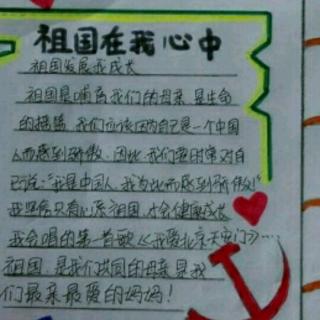 祖国在我心中
祖国发展我成长
祖国是哺育我们的母亲,是生命
的摇篮,我们应该因为自己是一个中国
人而感到骄傲。因此,我们要时常对自
己说:“我是中国人,我为此而感到骄傲!”
我坚信只有心系祖国,才会健康成长
我会唱的第一首歌《我爱北京天安门》……
祖国,是我们共同的母亲,是我
们最亲最爱的妈妈!